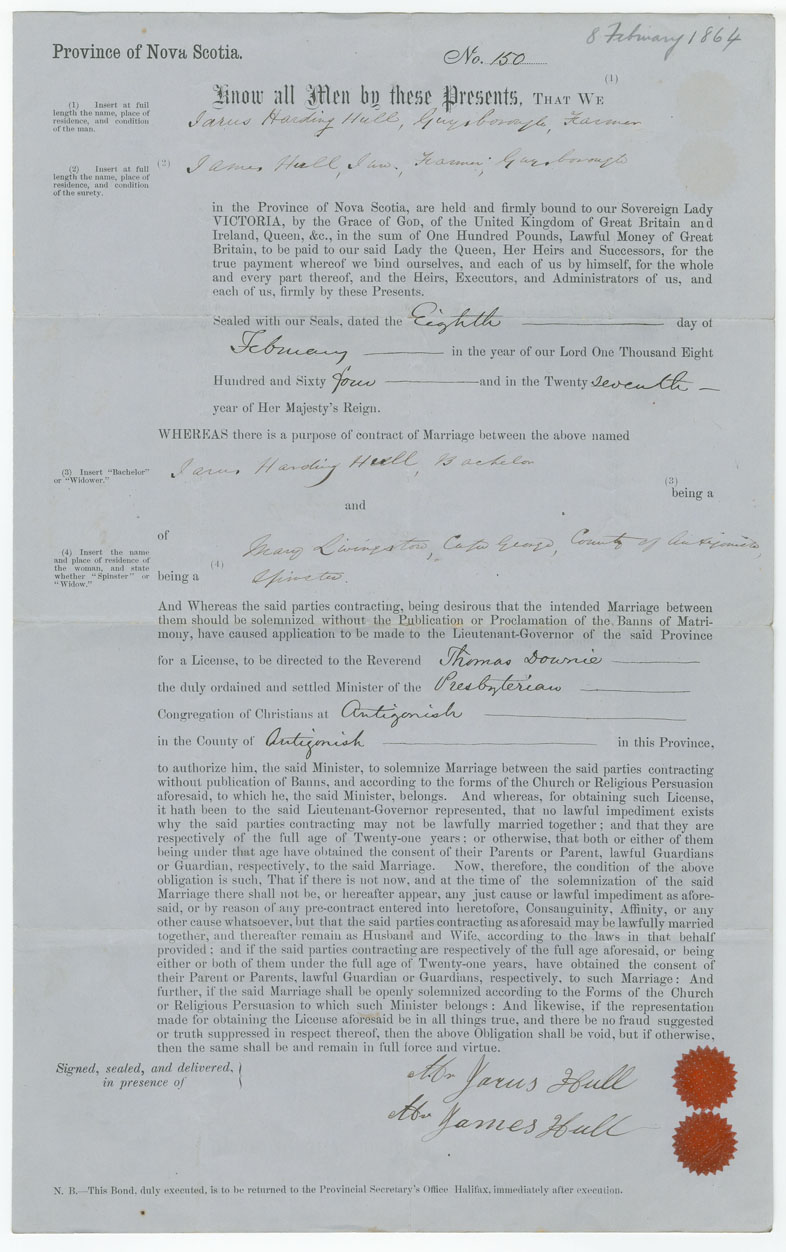 8 February 1864
Province of Nova Scotia.
No. 150
(1)
Know all Men by these Presents, That We
(1) Insert at full
length the name, place of
residence, and condition
of the man.
Jarus Harding Hull, Guysborough, Farmer
(2) Insert at full
length the name, place of
residence, and condition
of the surety.
(2)
James Hull, Jun., Farmer, Guysborough
in the Province of Nova Scotia, are held and firmly bound to our Sovereign Lady
VICTORIA, by the Grace of God, of the United Kingdom of Great Britain and
Ireland, Queen, &c., in the sum of One Hundred Pounds, Lawful Money of Great
Britain, to be paid to our said Lady the Queen, Her Heirs and Successors, for the
true payment whereof we bind ourselves, and each of us by himself, for the whole
and every part thereof, and the Heirs, Executors, and Administrators of us, and
each of us, firmly by these Presents.
Sealed with our Seals, dated the Eighth day of
February in the year of our Lord One Thousand Eight
Hundred and Sixty four and in the Twenty seventh
year of Her Majesty's Reign.
WHEREAS there is a purpose of contract of Marriage between the above named
(3) Insert "Bachelor"
or "Widower."
Jarus Harding Hull, Bachelor
(3)
being a
and
of
(4) Insert the name
and place of residence of
the woman, and state
whether "Spinster" or
"Widow."
Mary Livingston, Cape George, County of Antigonish,
(4)
being a Spinster.
And Whereas the said parties contracting, being desirous that the intended Marriage between
them should be solemnized without the Publication or Proclamation of the Banns of Matri-
mony, have caused application to be made to the Lieutenant-Governor of the said Province
for a License, to be directed to the Reverend Thomas Downie
the duly ordained and settled Minister of the Presbyterian
Congregation of Christians at Antigonish
in the County of Antigonish in this Province,
to authorize him, the said Minister, to solemnize Marriage between the said parties contracting
without publication of Banns, and according to the forms of the Church or Religious Persuasion
aforesaid, to which he, the said Minister, belongs. And whereas, for obtaining such License,
it hath been to the said Lieutenant-Governor represented, that no lawful impediment exists
why the said parties contracting may not be lawfully married together; and that they are
respectively of the full age of Twenty-one years: or otherwise, that both or either of them
being under that age have obtained the consent of their Parents or Parent, lawful Guardians
or Guardian, respectively, to the said Marriage. Now, therefore, the condition of the above
obligation is such, That if there is not now, and at the time of the solemnization of the said
Marriage there shall not be, or hereafter appear, any just cause or lawful impediment as afore-
said, or by reason of any pre-contract entered into heretofore, Consanguinity, Affinity, or any
other cause whatsoever, but that the said parties contracting as aforesaid may be lawfully married
together, and thereafter remain as Husband and Wife, according to the laws in that behalf
provided; and if the said parties contracting are respectively of the full age aforesaid, or being
either or both of them under the full age of Twenty-one years, have obtained the consent of
their Parent or Parents, lawful Guardian or Guardians, respectively, to such Marriage: And
further, if the said Marriage shall be openly solemnized according to the Forms of the Church
or Religious Persuasion to which such Minister belongs: And likewise, if the representation
made for obtaining the License aforesaid be in all things true, and there be no fraud suggested
or truth suppressed in respect thereof, then the above Obligation shall be void, but if otherwise,
then the same shall be and remain in full force and virtue.
Signed, sealed, and delivered,
in presence of
Mr Jarus Hull
Mr James Hull
N. B.—This Bond, duly executed, is to be returned to the Provincial Secretary's Office Halifax, immediately after execution.